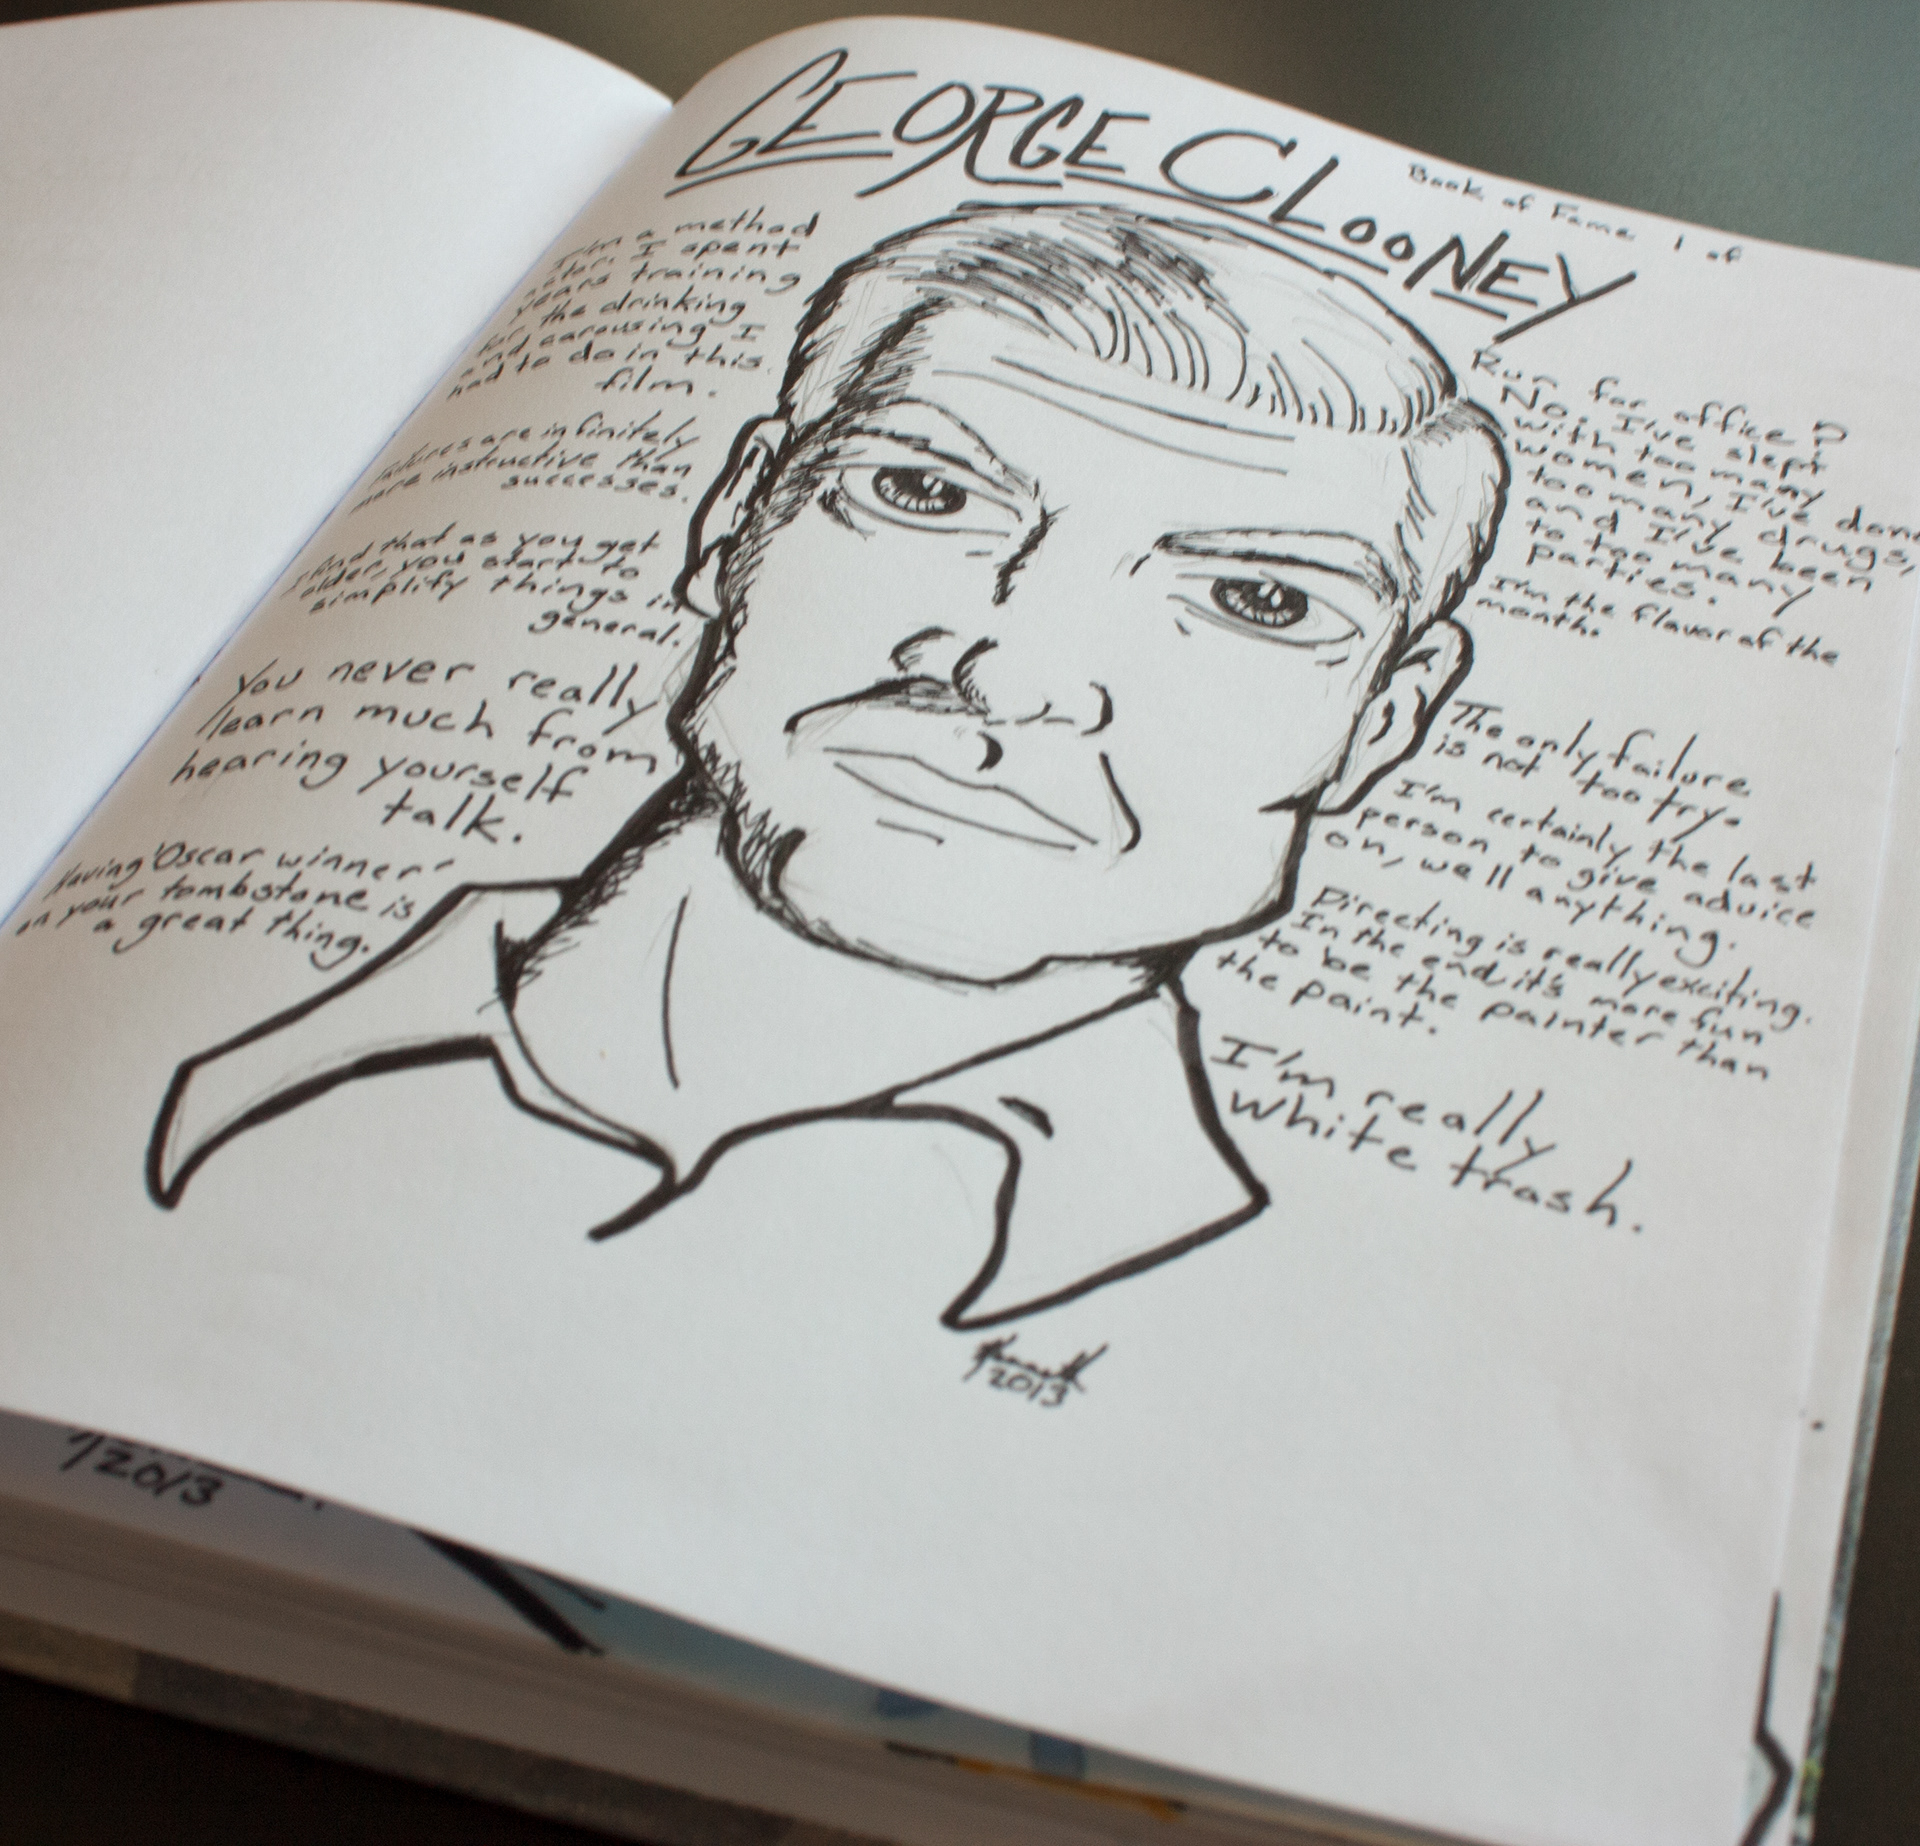 GEORGE CLOONEY
Book of Fame 1 of
I'm a method
actor. I spent
years training
for the drinking
and carousing I
had to do in this
film.
Failures are infinitely
more instructive than
successes.
I find that as you get
older, you start to
simplify things in
general.
You never really
learn much from
hearing yourself
talk.
Having 'Oscar winner'
on your tombstone is
a great thing.
Run for office?
No. I've slept
with too many
women, I've done
too many drugs,
and I've been
to too many
parties.
I'm the flavor of the
month.
The only failure
is not too try.
I'm certainly the last
person to give advice
on, well anything.
Directing is really exciting.
In the end it's more fun
to be the painter than
the paint.
I'm really
white trash.
2013
2013